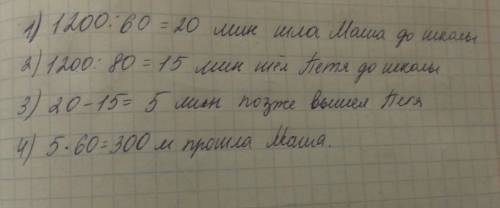 1) 1200:60=20 мин шла Маша до школы
2) 1200:80=15 мин шёл Петя до школы
3) 20-15=5 мин позже вышел Петя
4) 5·60=300 м прошла Маша.